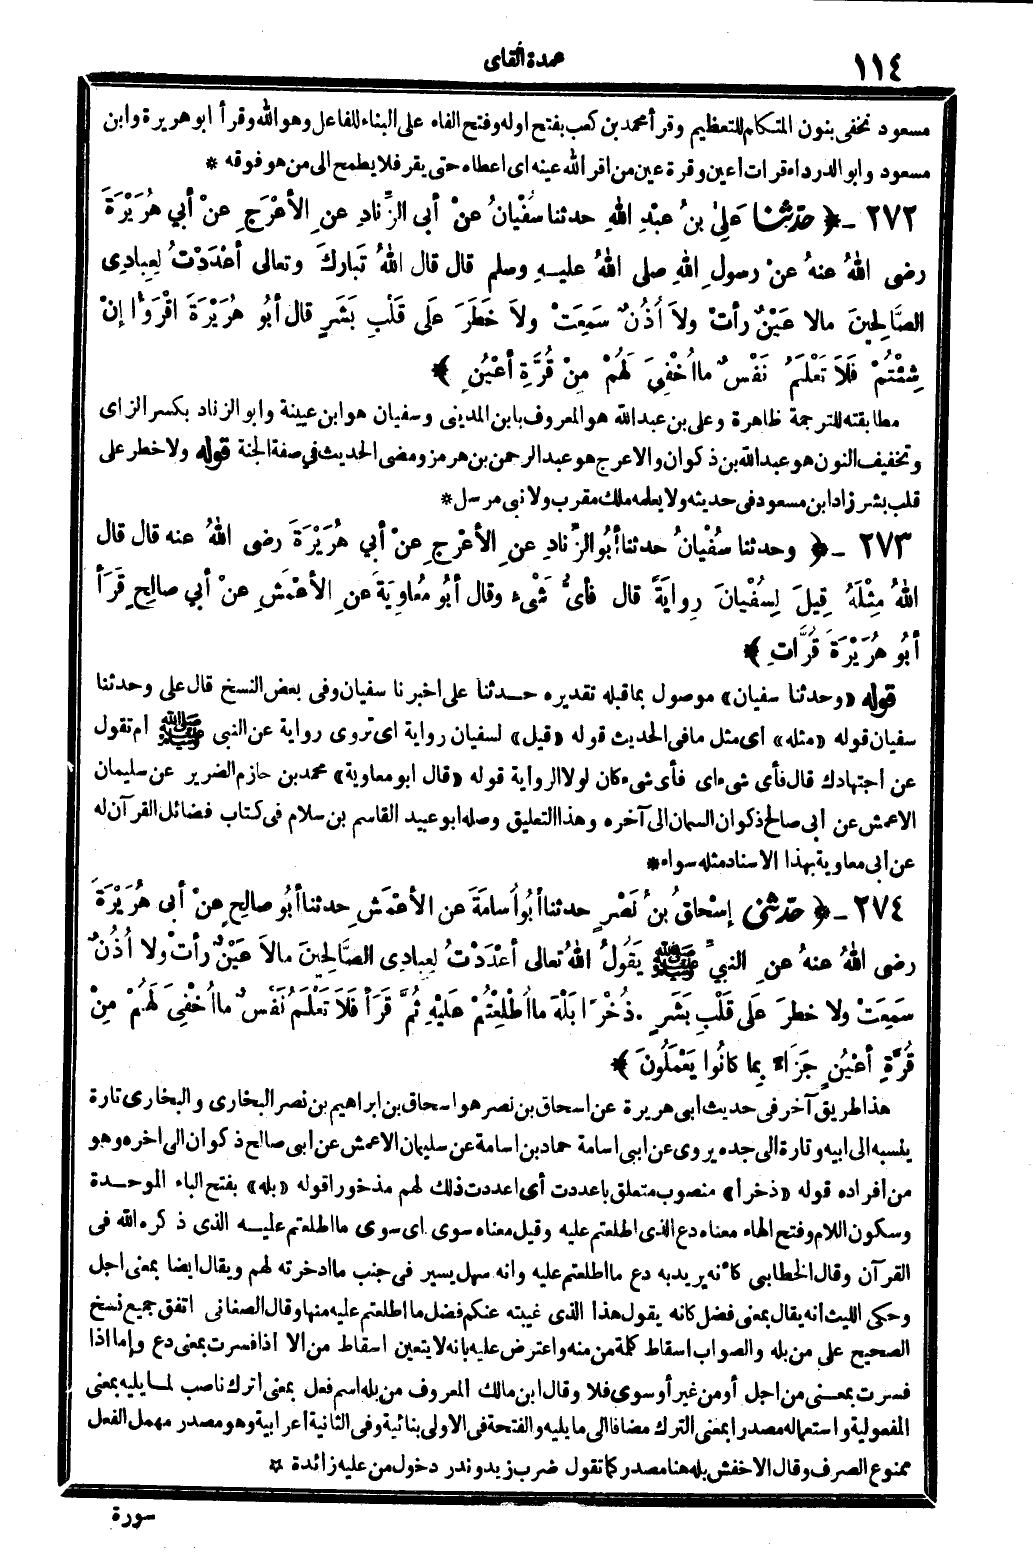 ١١٤
عمدة القاى
مسعود نخفى بنون المتكلم للتعظيم وقرأ محمد بن كعب بفتح اوله وفتح الفاء على البناء للفاعل وهو الله وقرأ ابو هريرة وابن
مسعود وابو الدرداء قرات اعين وقرة عين من اقر الله عينه اى اعطاه حتى يقر فلا يطمح الى من هو فوقه *
٢٧٢ - ﴿ حَدَّثَنَا عَلِيُّ بنُ عبْدِ اللهِ حدثنا سُفْيانُ عنْ أبى الزِّنادِ عنِ الأعْرَجِ عنْ أبي هُرَيْرَةَ
رضى اللهُ عنهُ عنْ رسولِ اللهِ صلى اللهُ عليهِ وسلم قال قال اللهُ تَبارَكَ وتعالى أعْدَدْتُ لِعِبادِى
الصَّالِحِينَ مالا عَيْنٌ رأتْ ولاَ أُذُنٌ سَمِعَتْ ولاَ خَطَرَ عَلَى قَلْبِ بَشَرٍ قال أبُو هُرَيْرَةَ اقْرَؤُا إنْ
شِئْتُمْ فَلاَ تَعْلَمُ نَفْسٌ ما أُخْفِيَ لَهُمْ مِنْ قُرَّةِ أعْيُنٍ ﴾
مطابقته للترجمة ظاهرة وعلى بن عبد الله هو المعروف بابن المدينى وسفيان هو ابن عيينة وابو الزناد بكسر الزاى
وتخفيف النون هو عبد الله بن ذكوان والاعرج هو عبد الرحمن بن هرمز ومضى الحديث في صفة الجنة قوله ولا خطر على
قلب بشر زاد ابن مسعود فى حديثه ولا يعلمه ملك مقرب ولا نبى مرسل *
٢٧٣ - ﴿ وحدثنا سُفْيانُ حدثنا أبُو الزِّنادِ عنِ الأعْرجِ عنْ أبي هُرَيْرَةَ رضى اللهُ عنه قال قال
اللهُ مِثْلَهُ قِيلَ لِسُفْيانَ رِوايَةً قال فأىُّ شَىْءٍ وقال أبُو مُعاوِيَةَ عنِ الأعْمَشِ عنْ أبي صالِحٍ قَرَأَ
أبُو هُرَيْرَةَ قُرَّاتِ ﴾
قوله «وحدثنا سفيان» موصول بما قبله تقديره حدثنا على اخبرنا سفيان وفى بعض النسخ قال على وحدثنا
سفيان قوله «مثله» اى مثل ما فى الحديث قوله «قيل» لسفيان رواية اى تروى رواية عن النبى ﷺ ام تقول
عن اجتهادك قال فأى شىء اى فأى شىء كان لولا الرواية قوله «قال ابو معاوية» محمد بن حازم الضرير عن سليمان
الاعمش عن ابى صالح ذكوان السمان الى آخره وهذا التعليق وصله ابو عبيد القاسم بن سلام فى كتاب فضائل القرآن له
عن ابى معاوية بهذا الاسناد مثله سواء *
٢٧٤ - ﴿ حدّثنى إسْحاقُ بنُ نَصْرٍ حدثنا أبُو أُسامَةَ عنِ الأعْمَشِ حدثنا أبُو صالِحٍ عنْ أبى هُرَيْرَةَ
رضى اللهُ عنهُ عنِ النبيِّ ﷺ يَقُولُ اللهُ تعالى أعْدَدْتُ لِعِبادِى الصَّالِحِينَ مالاَ عَيْنٌ رأتْ ولا أُذُنٌ
سَمِعَتْ ولا خطرَ عَلَى قَلْبِ بَشَرٍ . ذُخْرًا بَلْهَ ما اُطْلِعْتُمْ عَلَيْهِ ثُمَّ قَرَأَ فَلاَ تَعْلَمُ نَفْسٌ ما أُخْفِىَ لَهُمْ مِنْ
قُرَّةِ أعْيُنٍ جَزَاءً بِما كانُوا يَعْمَلُونَ ﴾
هذا طريق آخر فى حديث ابى هريرة عن اسحاق بن نصر هو اسحاق بن ابراهيم بن نصر البخارى والبخارى تارة
ينسبه الى ابيه وتارة الى جده يروى عن ابى اسامة حماد بن اسامة عن سليمان الاعمش عن ابى صالح ذكوان الى اخره وهو
من أفراده قوله «ذخرا» منصوب متعلق باعددت أى اعددت ذلك لهم مذخورا قوله «بله» بفتح الباء الموحدة
وسكون اللام وفتح الهاء معناه دع الذى اطلعتم عليه وقيل معناه سوى اى سوى ما اطلعتم عليه الذى ذكره الله فى
القرآن وقال الخطابى كأنه يريد به دع ما اطلعتم عليه وانه سهل يسير فى جنب ما ادخرته لهم ويقال ايضا بمعنى اجل
وحكى الليث انه يقال بمعنى فضل كانه يقول هذا الذى غيبته عنكم فضل ما اطلعتم عليه منها وقال الصغانى اتفق جميع نسخ
الصحيح على من بله والصواب اسقاط كلمة من منه واعترض عليه بانه لا يتعين اسقاط من الا اذا فسرت بمعنى دع وإما اذا
فسرت بمعنى من اجل أو من غير أو سوى فلا وقال ابن مالك المعروف من بله اسم فعل بمعنى اترك ناصب لما يليه بمعنى
المفعولية واستعماله مصدرا بمعنى الترك مضافا الى ما يليه والفتحة فى الاولى بنائية وفى الثانية أعرابية وهو مصدر مهمل الفعل
ممنوع الصرف وقال الاخفش بله هنا مصدر كما تقول ضرب زيد وندر دخول من عليه زائدة *
سورة